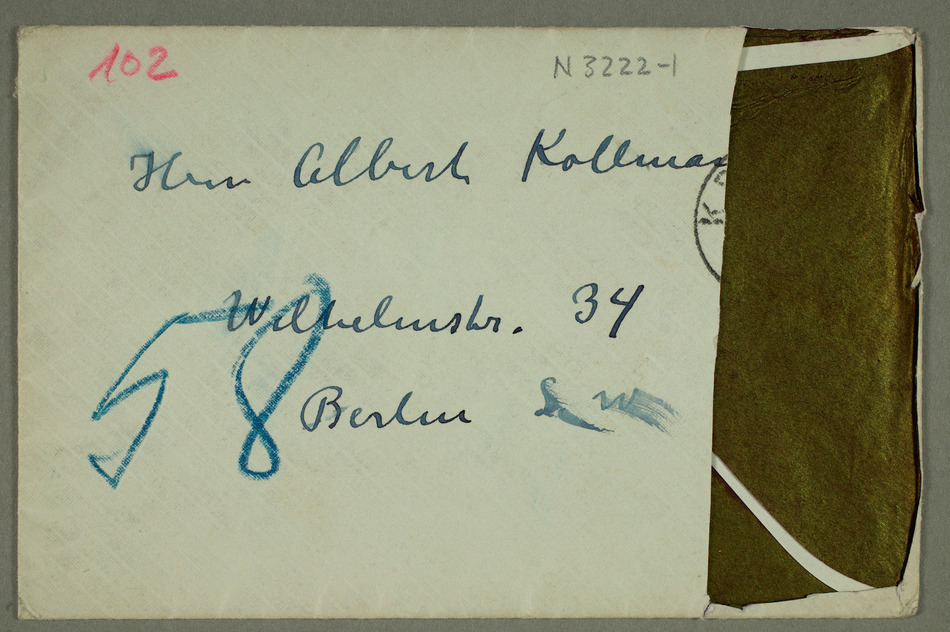 102
N 3222-1
Herrn Albert Kollman
K
Wilhelmstr. 34
58
Berlin S. W